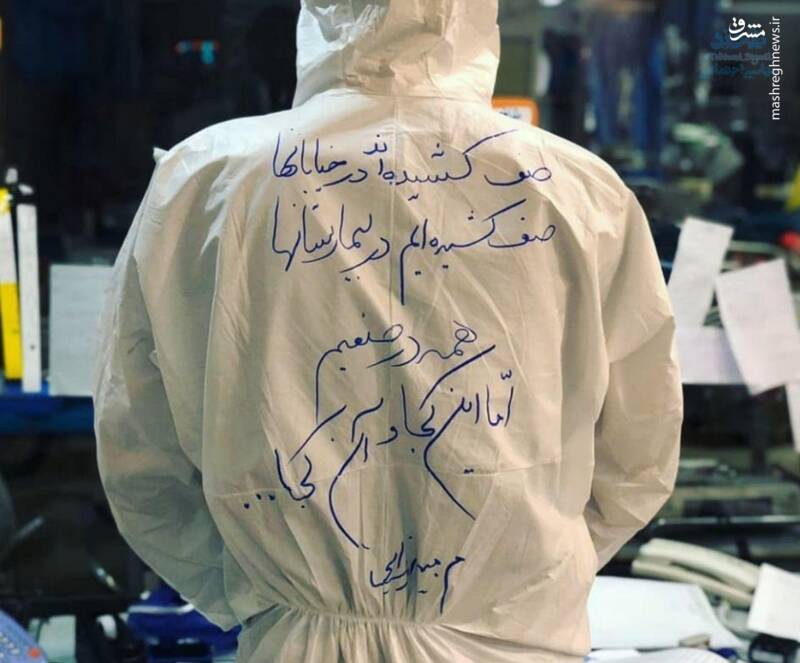 صف کشیده‌اند در خیابانها
صف کشیده‌ایم در بیمارستانها
همه در صفیم
اما این کجا و آن کجا...
م
مشرق
mashreghnews.ir